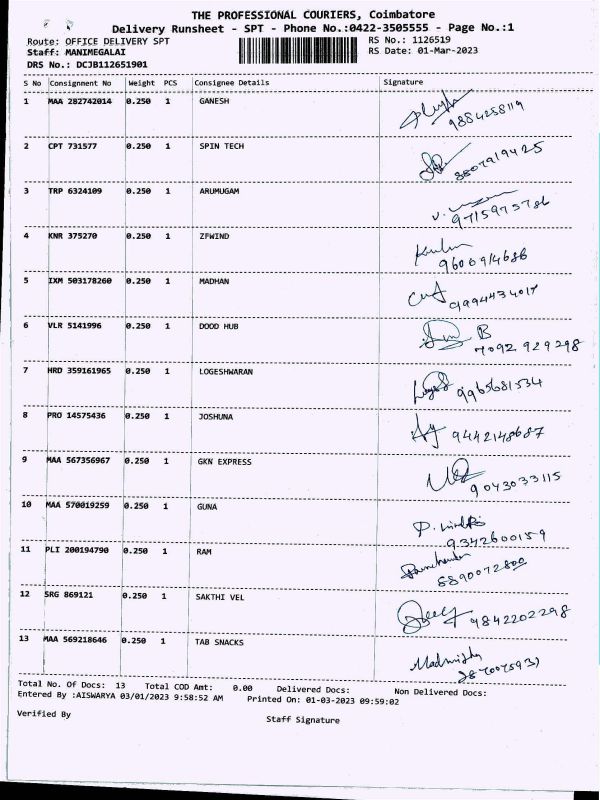 THE PROFESSIONAL COURIERS, Coimbatore
Delivery Runsheet - SPT - Phone No.:0422-3505555 - Page No.:1
Route: OFFICE DELIVERY SPT RS No.: 1126519
Staff: MANIMEGALAI RS Date: 01-Mar-2023
DRS No.: DCJB112651901
S No Consignment No Weight PCS Consignee Details Signature
1 MAA 282742014 0.250 1 GANESH
9884258119
2 CPT 731577 0.250 1 SPIN TECH
8807919425
3 TRP 6324109 0.250 1 ARUMUGAM
9715975786
4 KNR 375270 0.250 1 ZFWIND
9600914686
5 IXM 503178260 0.250 1 MADHAN
9994434017
6 VLR 5141996 0.250 1 DOOD HUB
B
7092 929298
7 HRD 359161965 0.250 1 LOGESHWARAN
9965681534
8 PRO 14575436 0.250 1 JOSHUNA
9442148687
9 MAA 567356967 0.250 1 GKN EXPRESS
9043033115
10 MAA 570019259 0.250 1 GUNA
9342600159
11 PLI 200194790 0.250 1 RAM
8890072800
12 SRG 869121 0.250 1 SAKTHI VEL
9842202298
13 MAA 569218646 0.250 1 TAB SNACKS
Total No. Of Docs: 13 Total COD Amt: 0.00 Delivered Docs: Non Delivered Docs:
Entered By :AISWARYA 03/01/2023 9:58:52 AM Printed On: 01-03-2023 09:59:02
Verified By Staff Signature